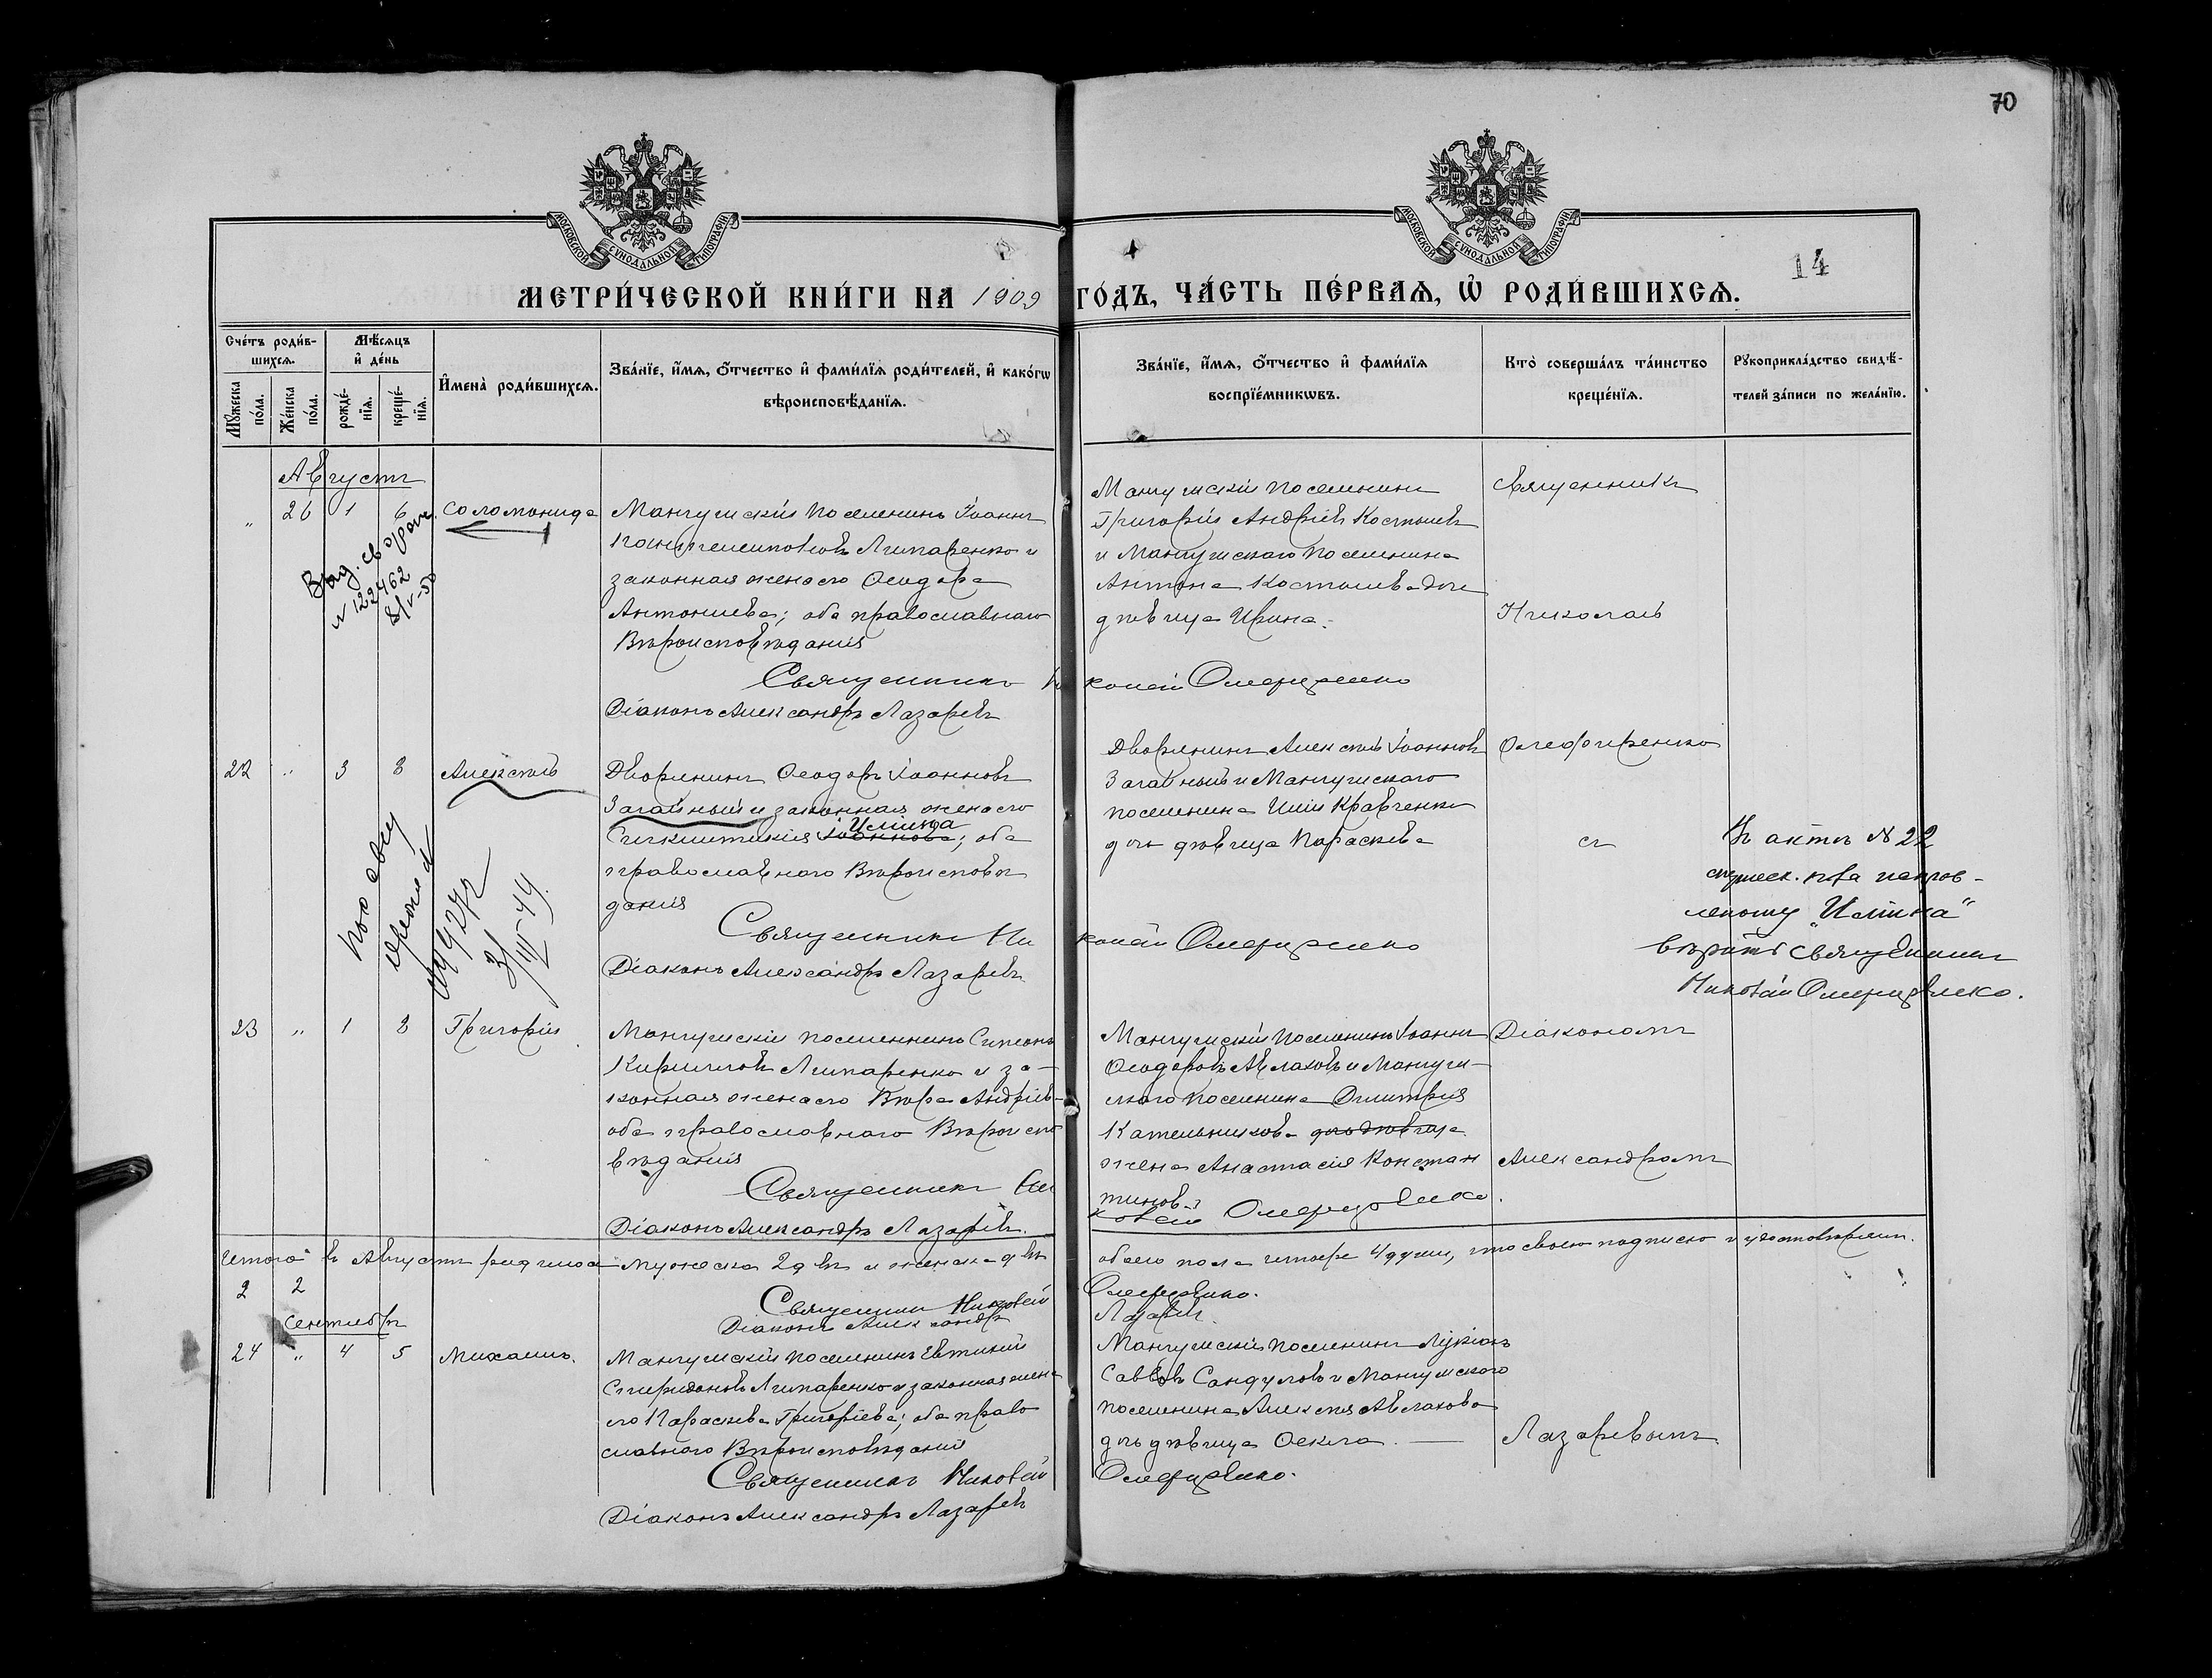 70
МОСКОВСКОЙ СѴНОДАЛЬНОЙ ТИПОГРАФІИ
МОСКОВСКОЙ СѴНОДАЛЬНОЙ ТИПОГРАФІИ
14
МЕТРИ́ЧЕСКОЙ КНИ́ГИ НА 1909 ГО́ДЪ, ЧА́СТЬ ПЕ́РВАѦ, Ѡ҆ РОДИ́ВШИХСѦ.
Сче́тъ роди́в-
шихсѧ.
Мꙋ́жеска по́ла.
Же́нска по́ла.
Мѣ́сѧцъ
и҆ де́нь
рожде́-
нїѧ.
креще́-
нїѧ.
И҆мена̀ роди́вшихсѧ.
Зва́нїе, и҆́мѧ, ѻ҆́тчество и҆ фами́лїѧ роди́телей, и҆ како́гѡ
вѣроисповѣ́данїѧ.
Зва́нїе, и҆́мѧ, ѻ҆́тчество и҆ фами́лїѧ
воспрїе́мникѡвъ.
Кто̀ соверша́лъ та́инство
креще́нїѧ.
Рꙋкоприкла́дство свидѣ́-
телей за́писи по жела́нїю.
Августъ
" 26 1 6 Соломонида
Мангушскій поселенинъ Іоаннъ
Пантелеимоновъ Липаренко и
законная жена его Ѳеодора
Антониева; оба православнаго
Вѣроисповѣданія
Священникъ Николай Олефиренко
Діаконъ Александръ Лазаревъ
Мангушскій поселенинъ
Григорій Андріевъ Костышевъ
и Мангушскаго поселенина
Антона Костышева дочь
дѣвица Ирина.
Священникъ
Николай
№ 122462
22 " 3 8 Алексѣй
Дворянинъ Ѳеодоръ Іоанновъ
Загайный и законная жена его
Іоаннова Иліина; оба
православнаго Вѣроисповѣ
данія
Священникъ Николай Олефиренко
Діаконъ Александръ Лазаревъ
Дворянинъ Алексѣй Іоанновъ
Загайный и Мангушскаго
поселенина Иліи Кравченко
дочь дѣвица Параскева
Олефиренко
съ
Въ актѣ № 22
исправ-
ленному „Иліина"
вѣрить Священникъ
Николай Олефиренко.
23 " 1 8 Григорій
Мангушскій поселенинъ Симеонъ
Кирилловъ Липаренко и за-
конная жена его Вѣра Андріева
оба православнаго Вѣроиспо
вѣданія
Священникъ Николай Олефиренко.
Діаконъ Александръ Лазаревъ.
Мангушскій поселенинъ Іоаннъ
Ѳеодоровъ Авлаховъ и Мангуш-
скаго поселенина Димитрія
Кательникова дочь дѣвица
жена Анастасія Констан
тинова
Діакономъ
Александромъ
Итого въ Августѣ родилось мужеска 2 двѣ и женска двѣ обоего пола четыре 4 души, что своею подписью и удостовѣряемъ.
2 2
Священникъ Николай Олефиренко.
Діаконъ Александръ Лазаревъ.
Сентябрь
24 " 4 5 Михаилъ.
Мангушскій поселенинъ Евтихій
Спиридоновъ Липаренко и законная жена
его Параскева Григоріева; оба право
славнаго Вѣроисповѣданія
Священникъ Николай Олефиренко.
Діаконъ Александръ Лазаревъ
Мангушскій поселенинъ Лукіанъ
Саввовъ Сандуловъ и Мангушскаго
поселенина Алексѣя Авлахова
дочь дѣвица Ѳекла. —
Лазаревымъ.